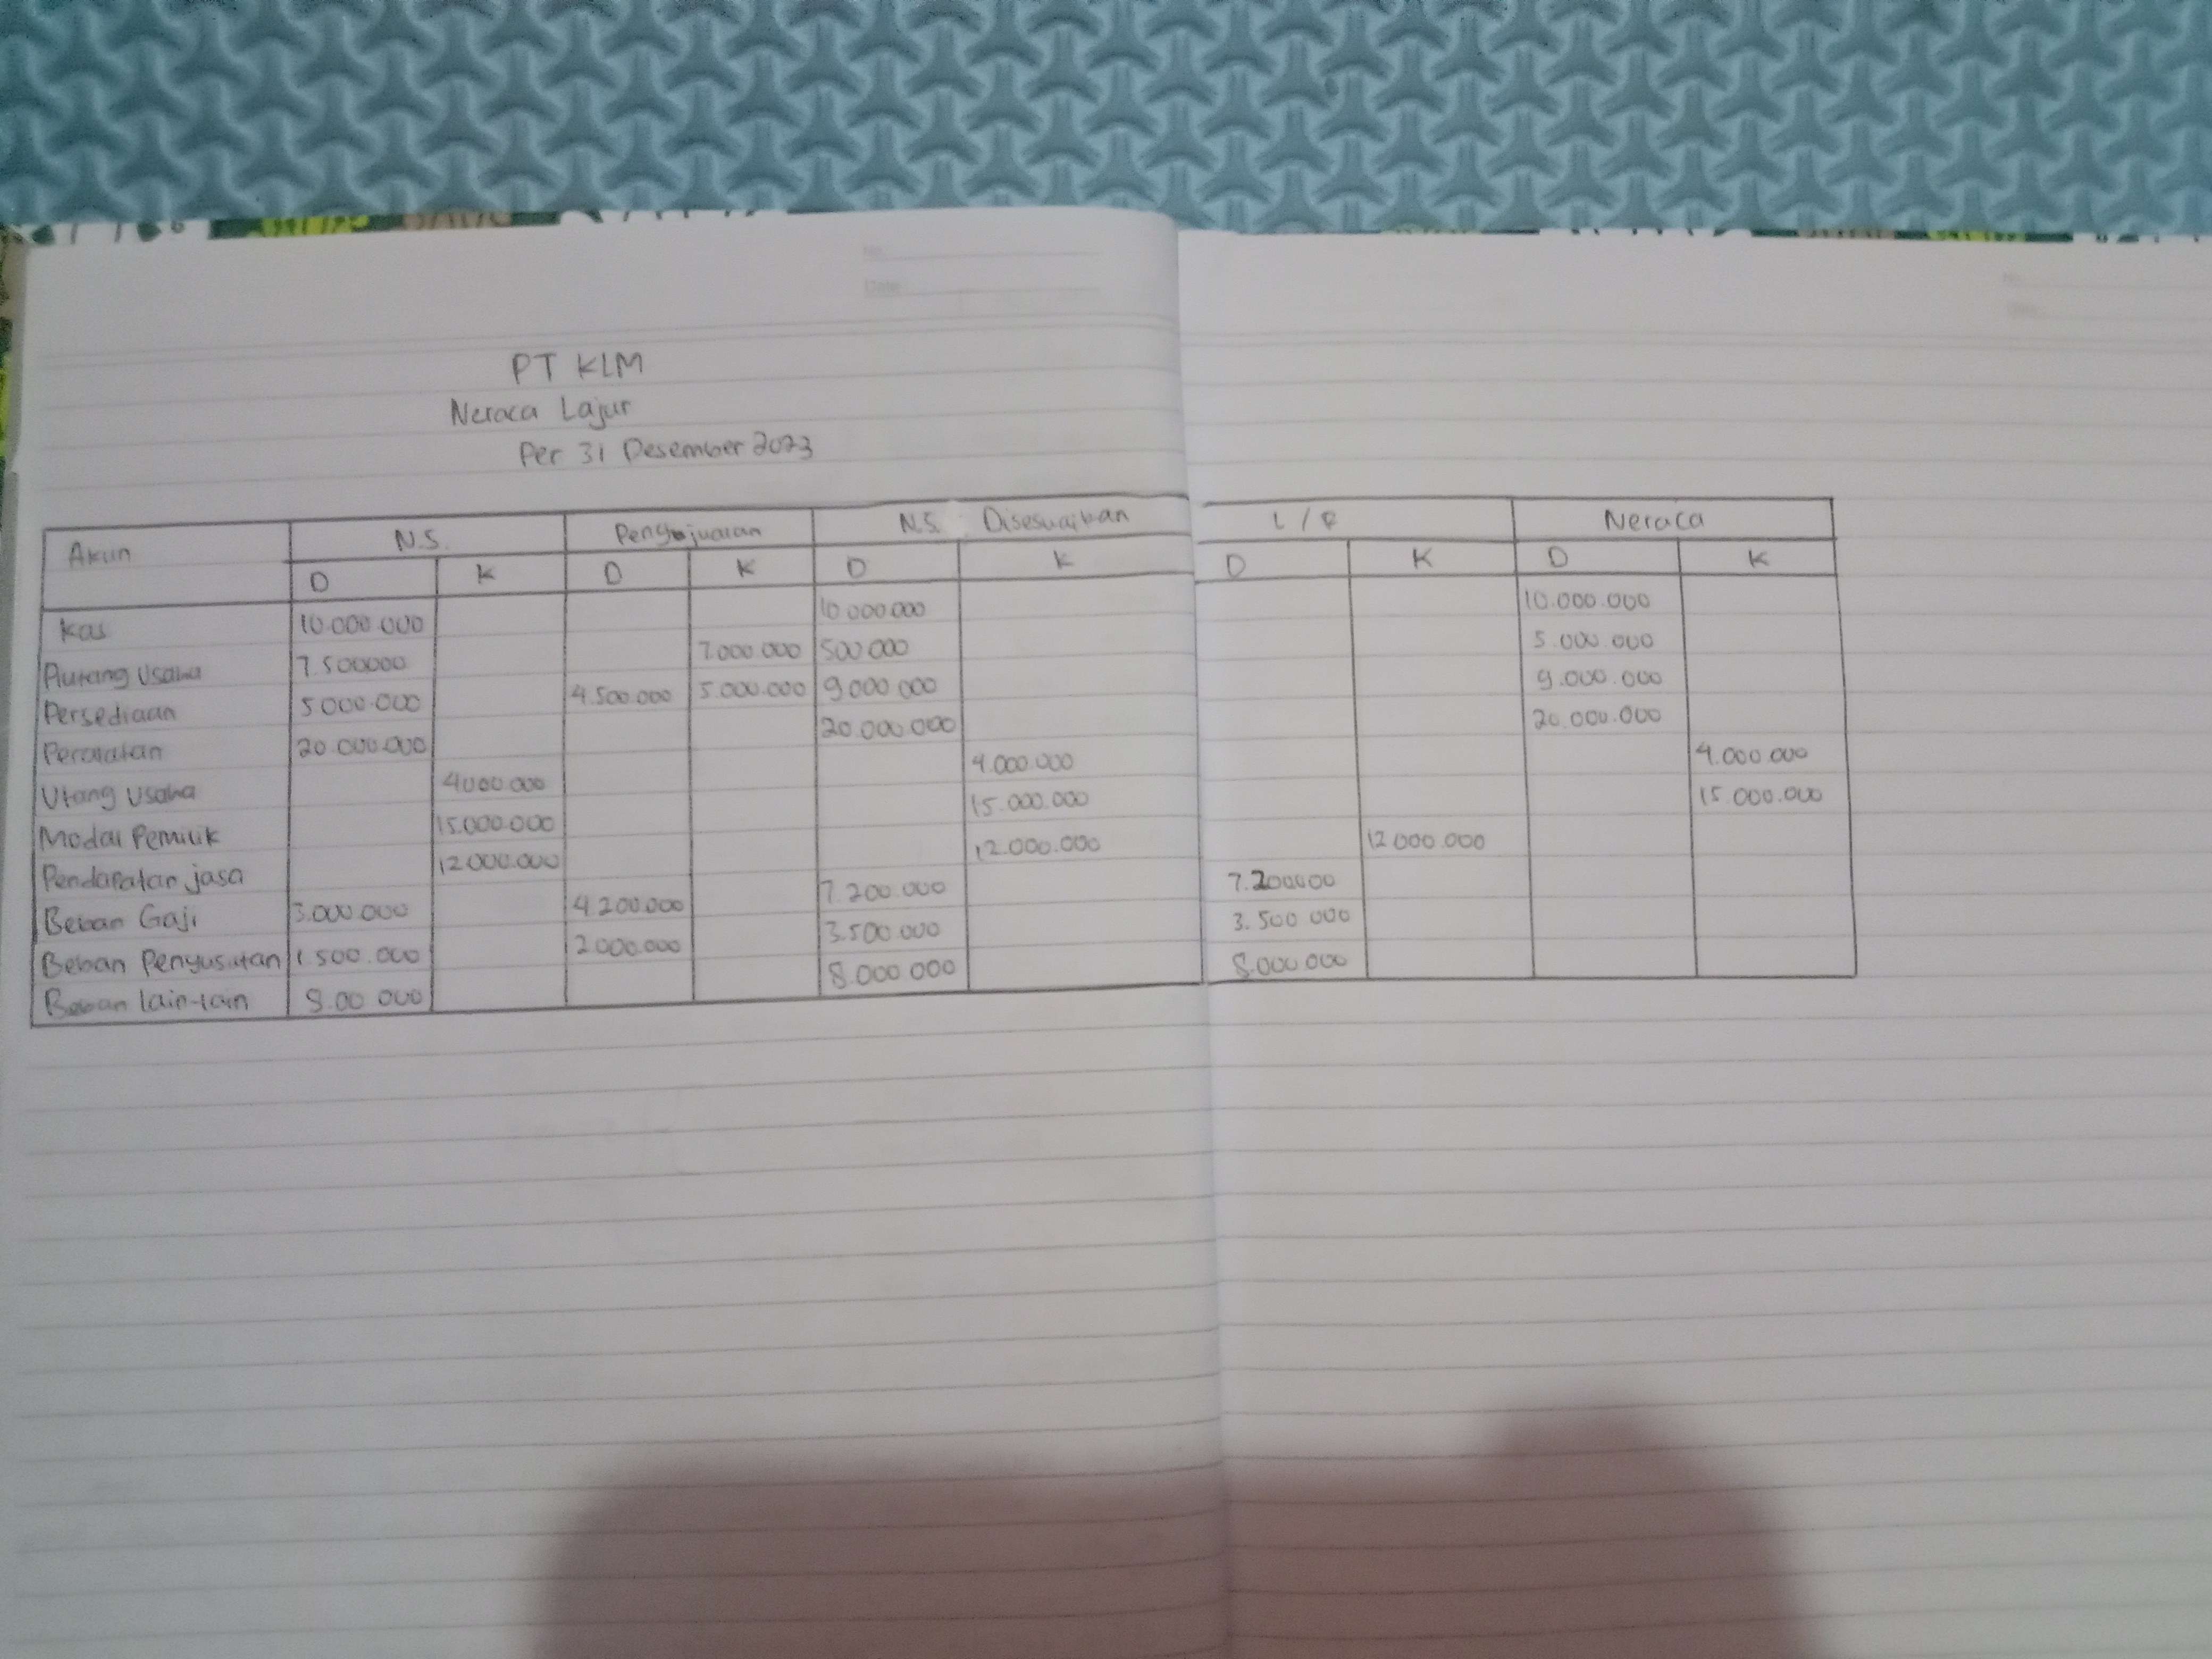 No.
Date
PT KLM
Neraca Lajur
Per 31 Desember 2023
Akun N.S. Penyejuaian N.S. Disesuaikan L / R Neraca
D K D K D K D K D K
Kas 10.000.000 10.000.000 10.000.000
Piutang Usaha 7.500000 7.000.000 500.000 5.000.000
Persediaan 5.000.000 4.500.000 5.000.000 9.000.000 9.000.000
Peralatan 20.000.000 20.000.000 20.000.000
Utang Usaha 4000.000 4.000.000 4.000.000
Modal Pemilik 15.000.000 15.000.000 15.000.000
Pendapatan jasa 12000.000 12.000.000 12.000.000
Beban Gaji 3.000.000 4.200.000 7.200.000 7.200000
Beban Penyusutan 1.500.000 2.000.000 3.500.000 3.500.000
Beban lain-lain 8.00.000 8.000.000 8.000.000